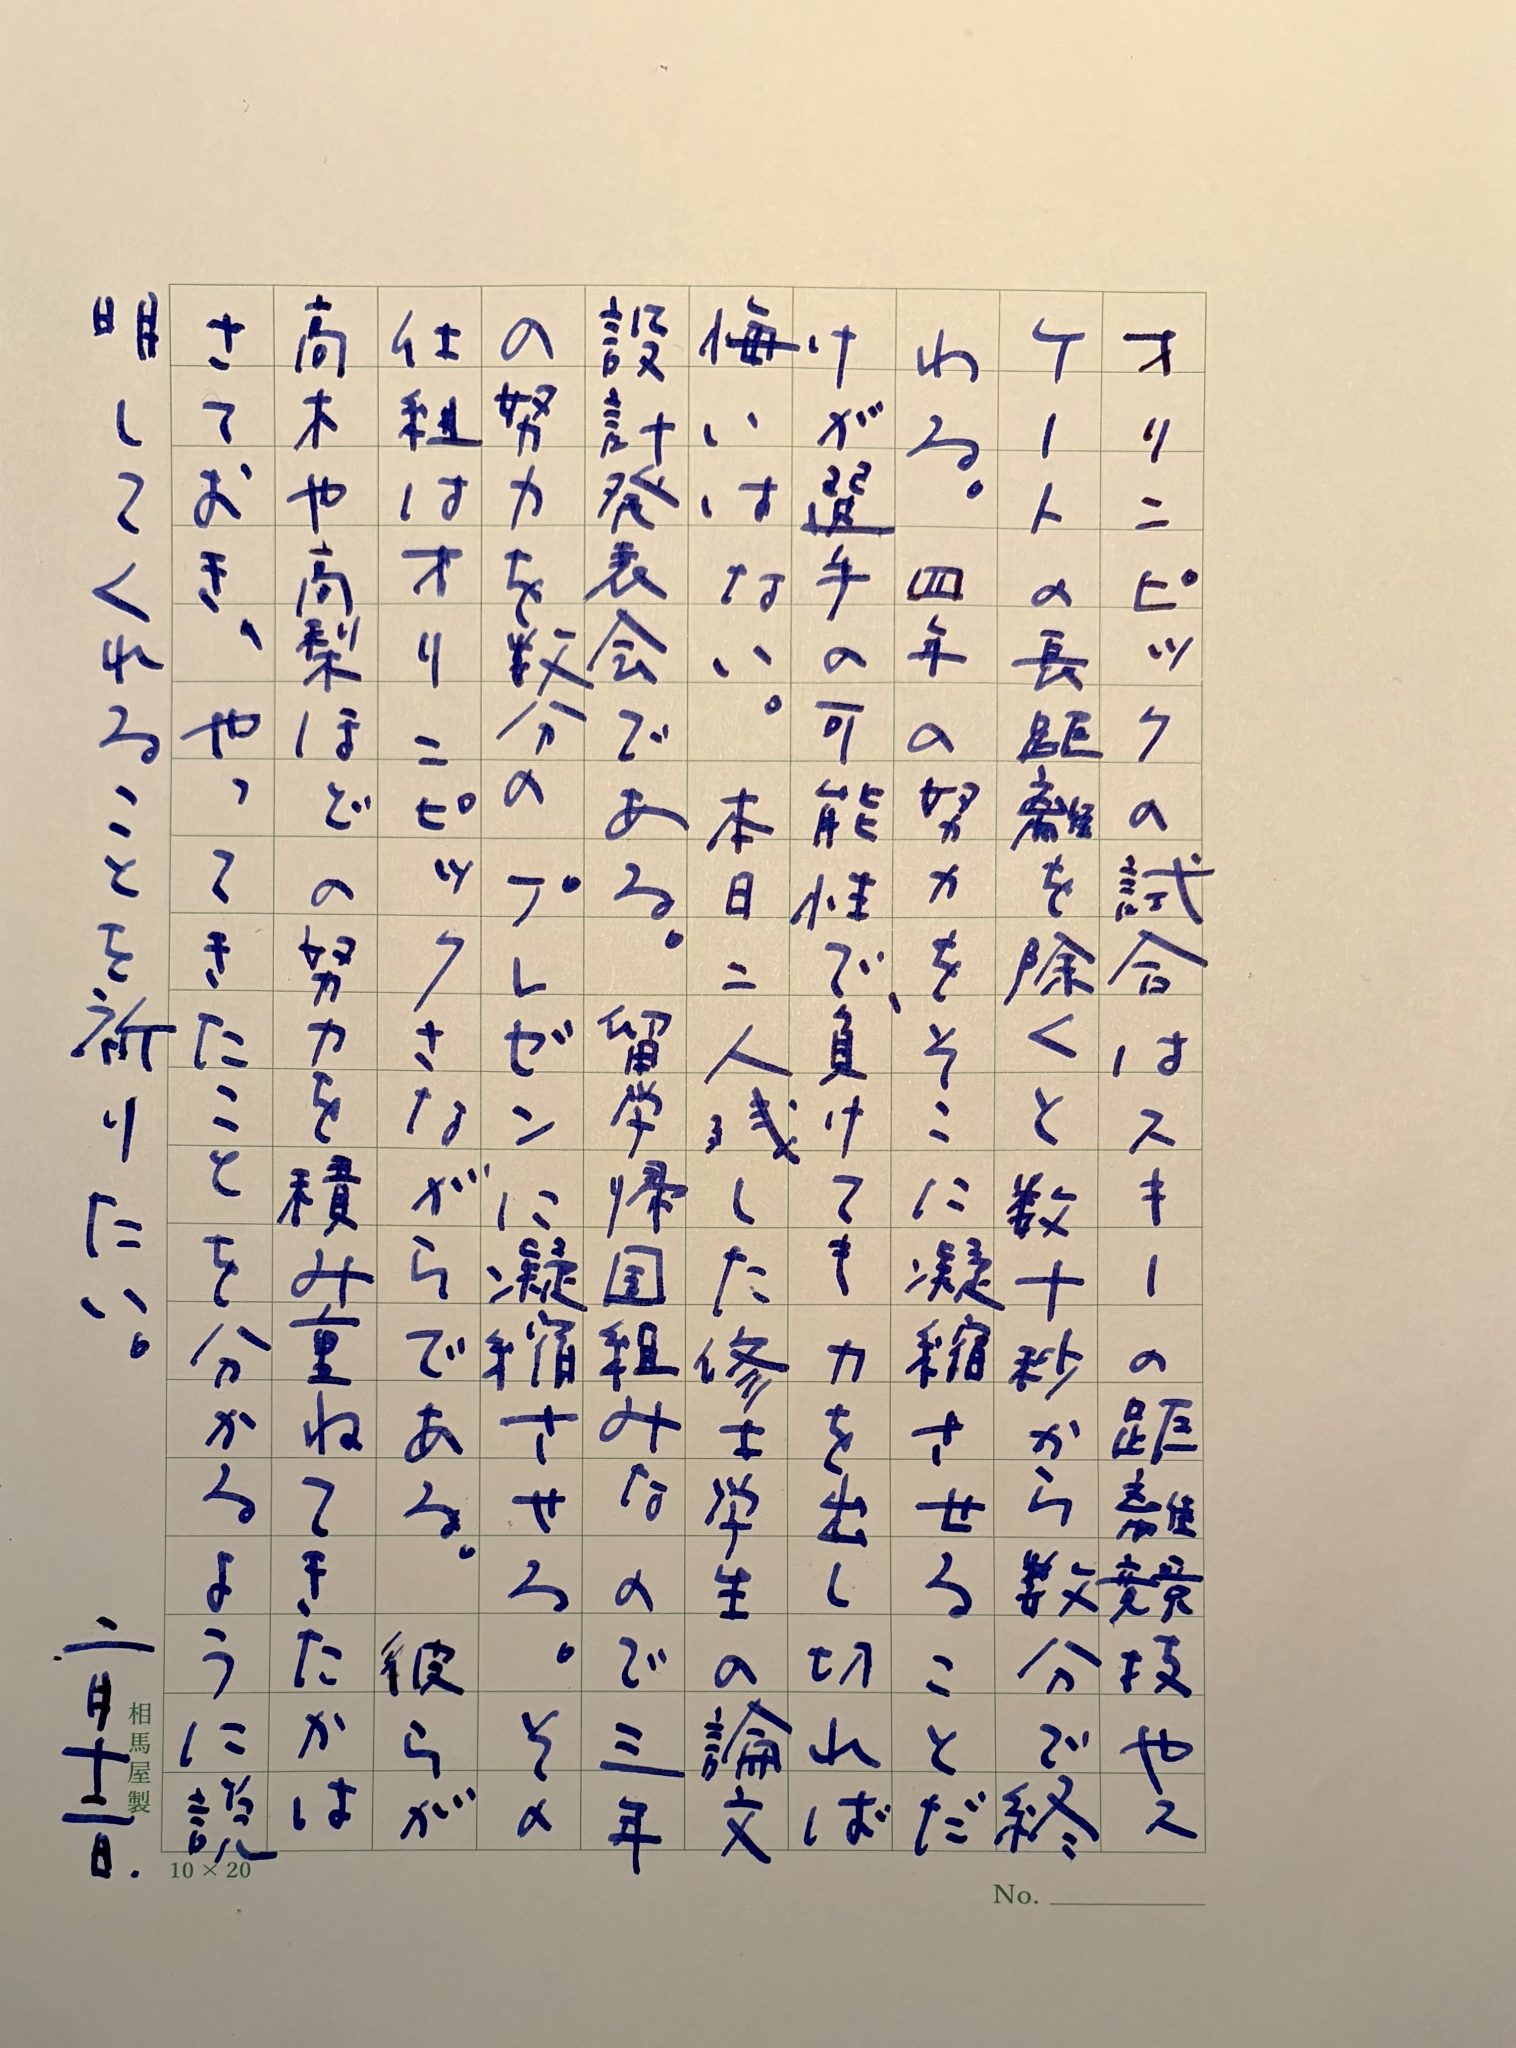 オリニピックの試合はスキーの距離競技やス
ケートの長距離を除くと数十秒から数分で終
わる。四年の努力をそこに凝縮させることだ
けが選手の可能性で、負けても力を出し切れば
悔いはない。本日二人残した修士学生の論文
設計発表会である。留学帰国組みなので三年
の努力を数分のプレゼンに凝縮させる。その
仕組はオリニピックさながらである。彼らが
高木や高梨ほどの努力を積み重ねてきたかは
さておき、やってきたことを分かるように説
明してくれることを祈りたい。
二月十二日.
相馬屋製
10×20
No.